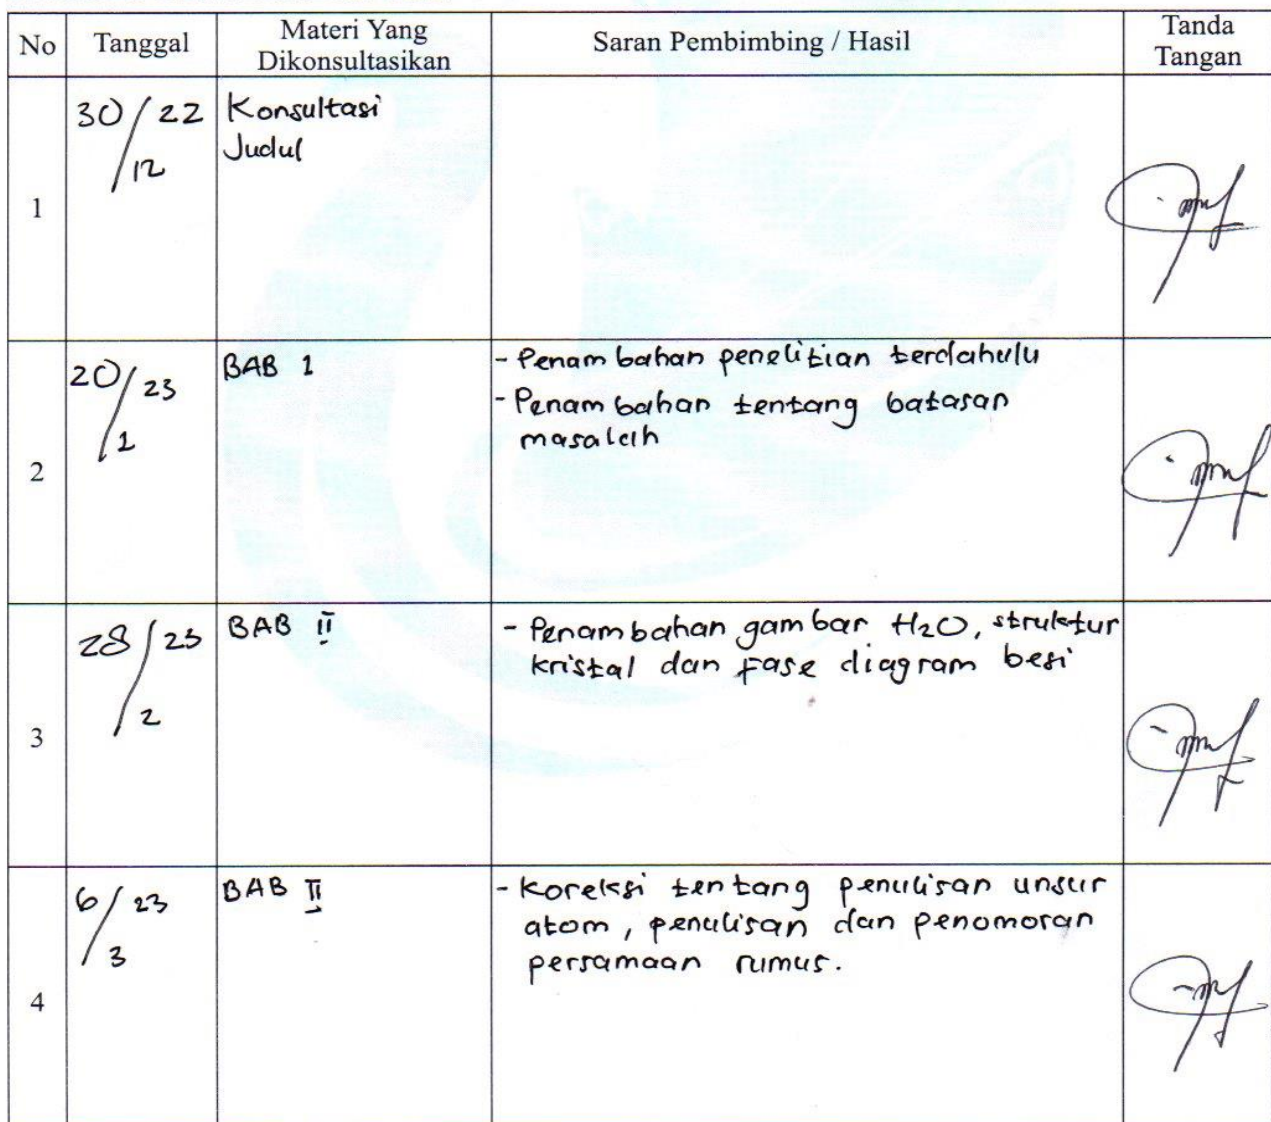 No Tanggal Materi Yang Dikonsultasikan Saran Pembimbing / Hasil Tanda Tangan
1 30/12 22 Konsultasi
Judul
2 20/1 23 BAB 1 - Penambahan penelitian terdahulu
- Penambahan tentang batasan
masalah
3 28/2 23 BAB II - Penambahan gambar H2O, struktur
kristal dan fase diagram besi
4 6/3 23 BAB II - Koreksi tentang penulisan unsur
atom, penulisan dan penomoran
persamaan rumus.